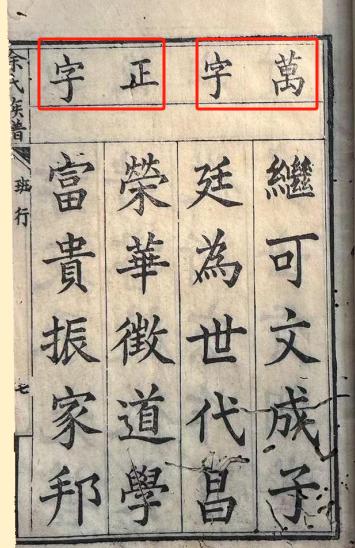 萬字
正字
繼可文成子
廷為世代昌
榮華徵道學
富貴振家邦
氏族譜
班行
七